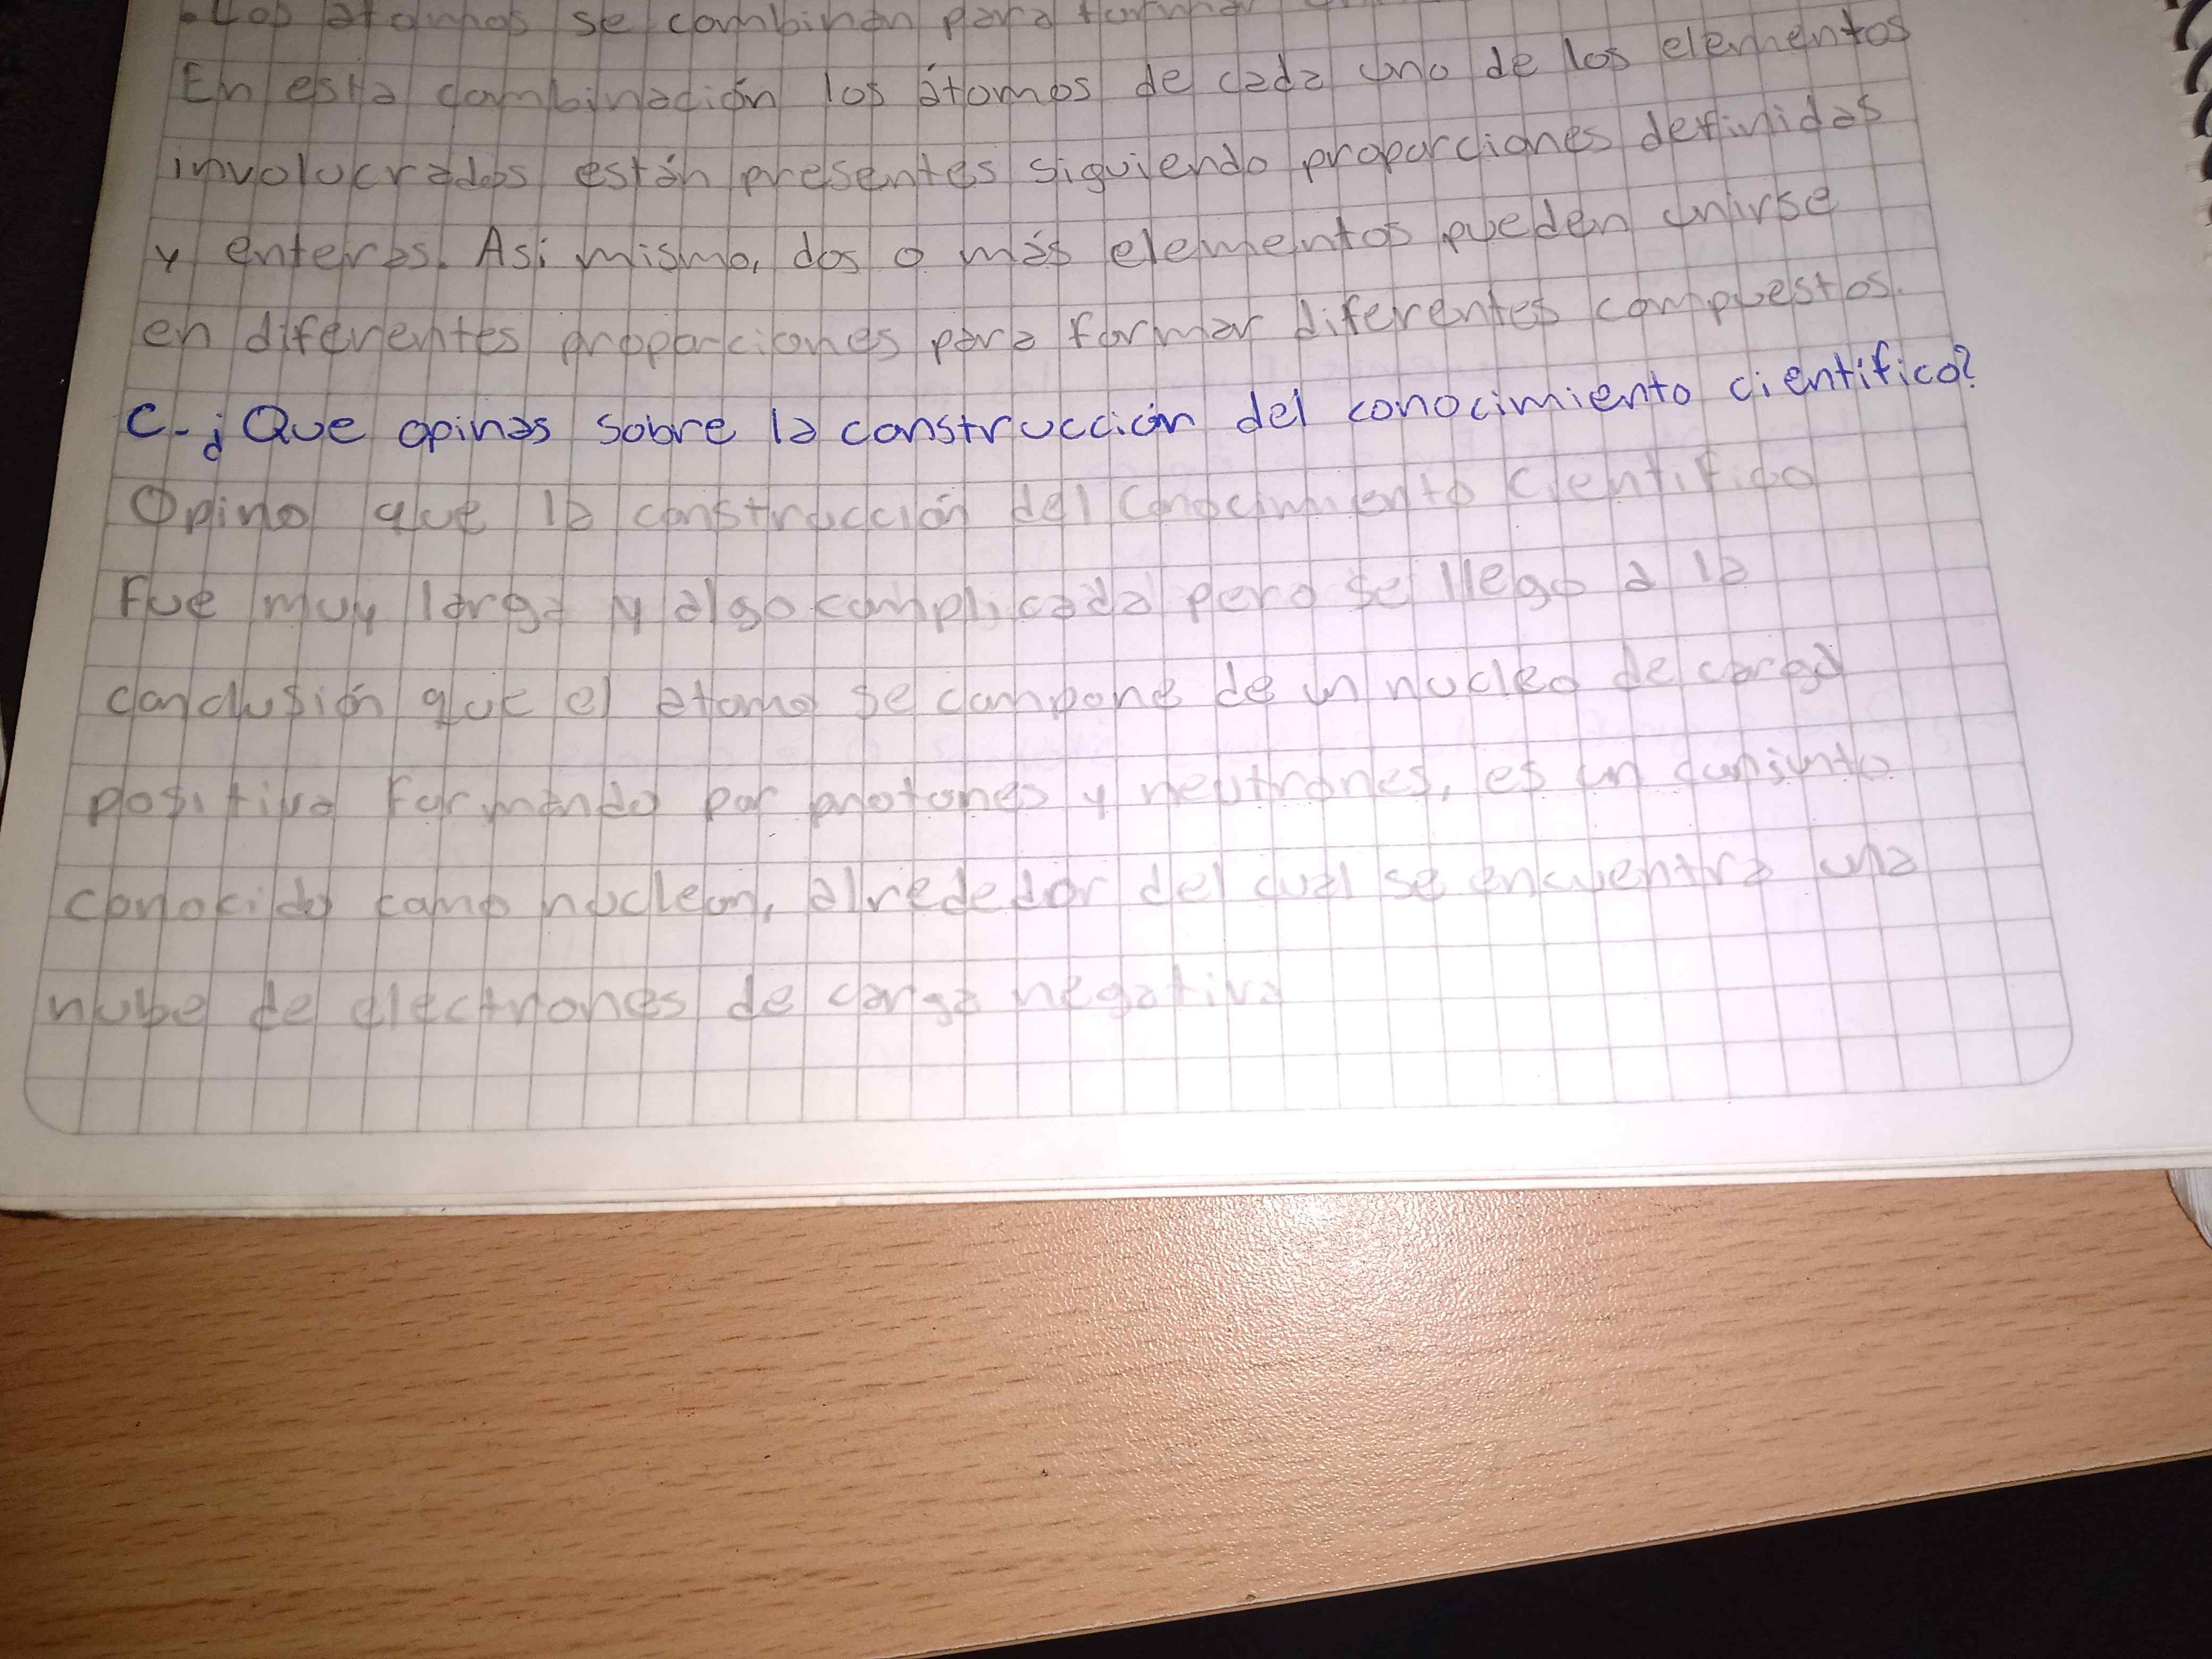 . Los átomos se combinan para formar
En esta combinación los átomos de cada uno de los elementos
involucrados están presentes siguiendo proporciones definidas
y enteras. Asi mismo, dos o más elementos pueden unirse
en diferentes proporciones para formar diferentes compuestos.
C.- ¿Que opinas sobre la construcción del conocimiento cientifico?
Opino que la construcción del conocimiento cientifico
Fue muy larga y algo complicada pero se llego a la
conclusión que el atomo se compone de un nucleo de carga
positiva Formando por protones y neutrones, es un conjunto
conocido como nucleon, alrededor del cual se encuentra una
nube de electrones de carga negativa